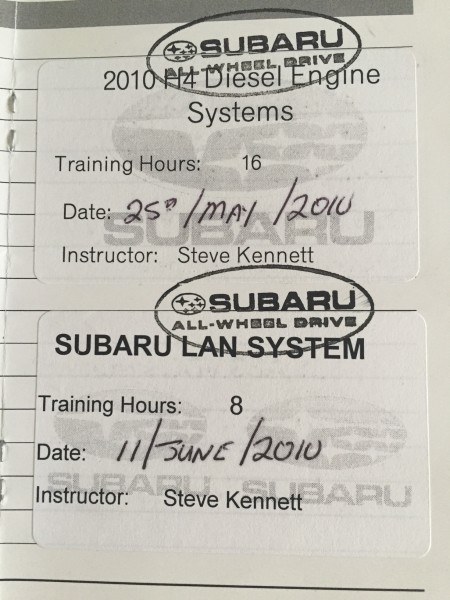 SUBARU
ALL-WHEEL DRIVE
2010 H4 Diesel Engine
Systems
Training Hours: 16
Date: 25th/MAY/2010
SUBARU
Instructor: Steve Kennett
SUBARU
ALL-WHEEL DRIVE
SUBARU LAN SYSTEM
Training Hours: 8
Date: 11/JUNE/2010
SUBARU SUBARU
Instructor: Steve Kennett